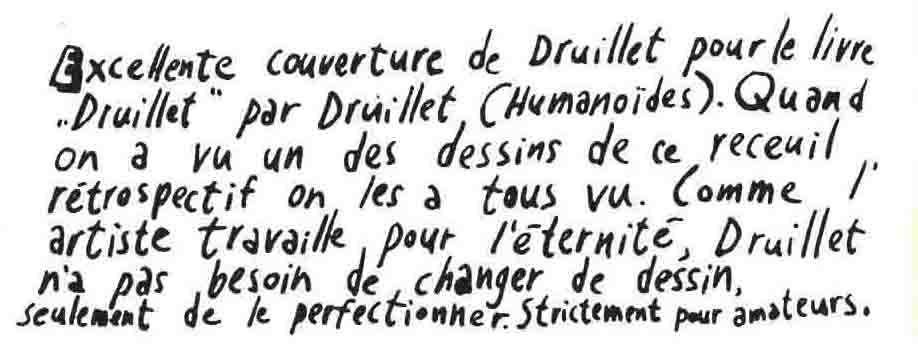 Excellente couverture de Druillet pour le livre
"Druillet" par Druillet, (Humanoïdes). Quand
on a vu un des dessins de ce receuil
rétrospectif on les a tous vu. Comme l'
artiste travaille pour l'éternité, Druillet
n'a pas besoin de changer de dessin,
seulement de le perfectionner. Strictement pour amateurs.